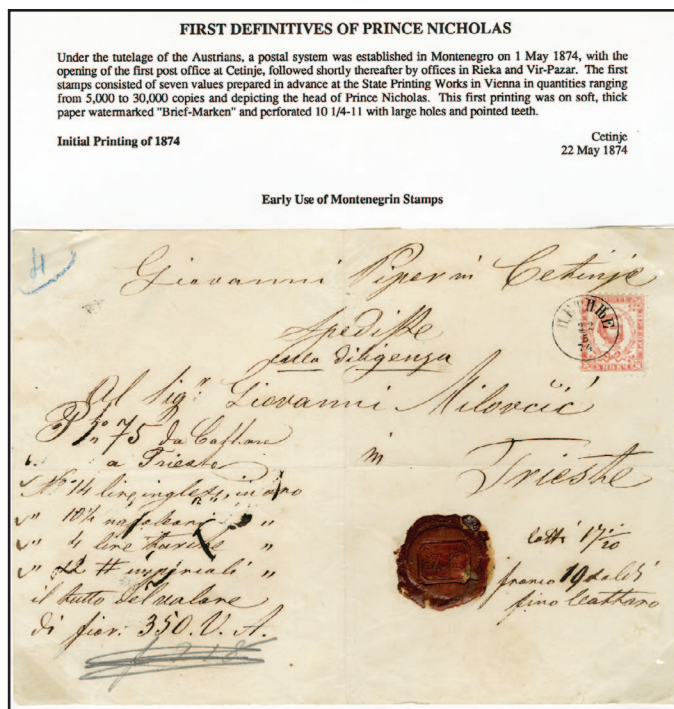 FIRST DEFINITIVES OF PRINCE NICHOLAS
Under the tutelage of the Austrians, a postal system was established in Montenegro on 1 May 1874, with the
opening of the first post office at Cetinje, followed shortly thereafter by offices in Rieka and Vir-Pazar. The first
stamps consisted of seven values prepared in advance at the State Printing Works in Vienna in quantities ranging
from 5,000 to 30,000 copies and depicting the head of Prince Nicholas. This first printing was on soft, thick
paper watermarked "Brief-Marken" and perforated 10 1/4-11 with large holes and pointed teeth.
Initial Printing of 1874
Cetinje
22 May 1874
Early Use of Montenegrin Stamps
Giovanni Piper in Cetinje
ЦЕТИЊЕ
Spedisce
diligenza
Al Sigr. Giovanni Milovčić
75 da Cattaro
a Trieste
in
Trieste
No 14 lire inglesi in oro
" napoleoni " "
" 4 lire turche "
" imperiali "
il tutto del valore
di fior: 350. V. A.
Lotti 17
franco 19 soldi
fino Cattaro